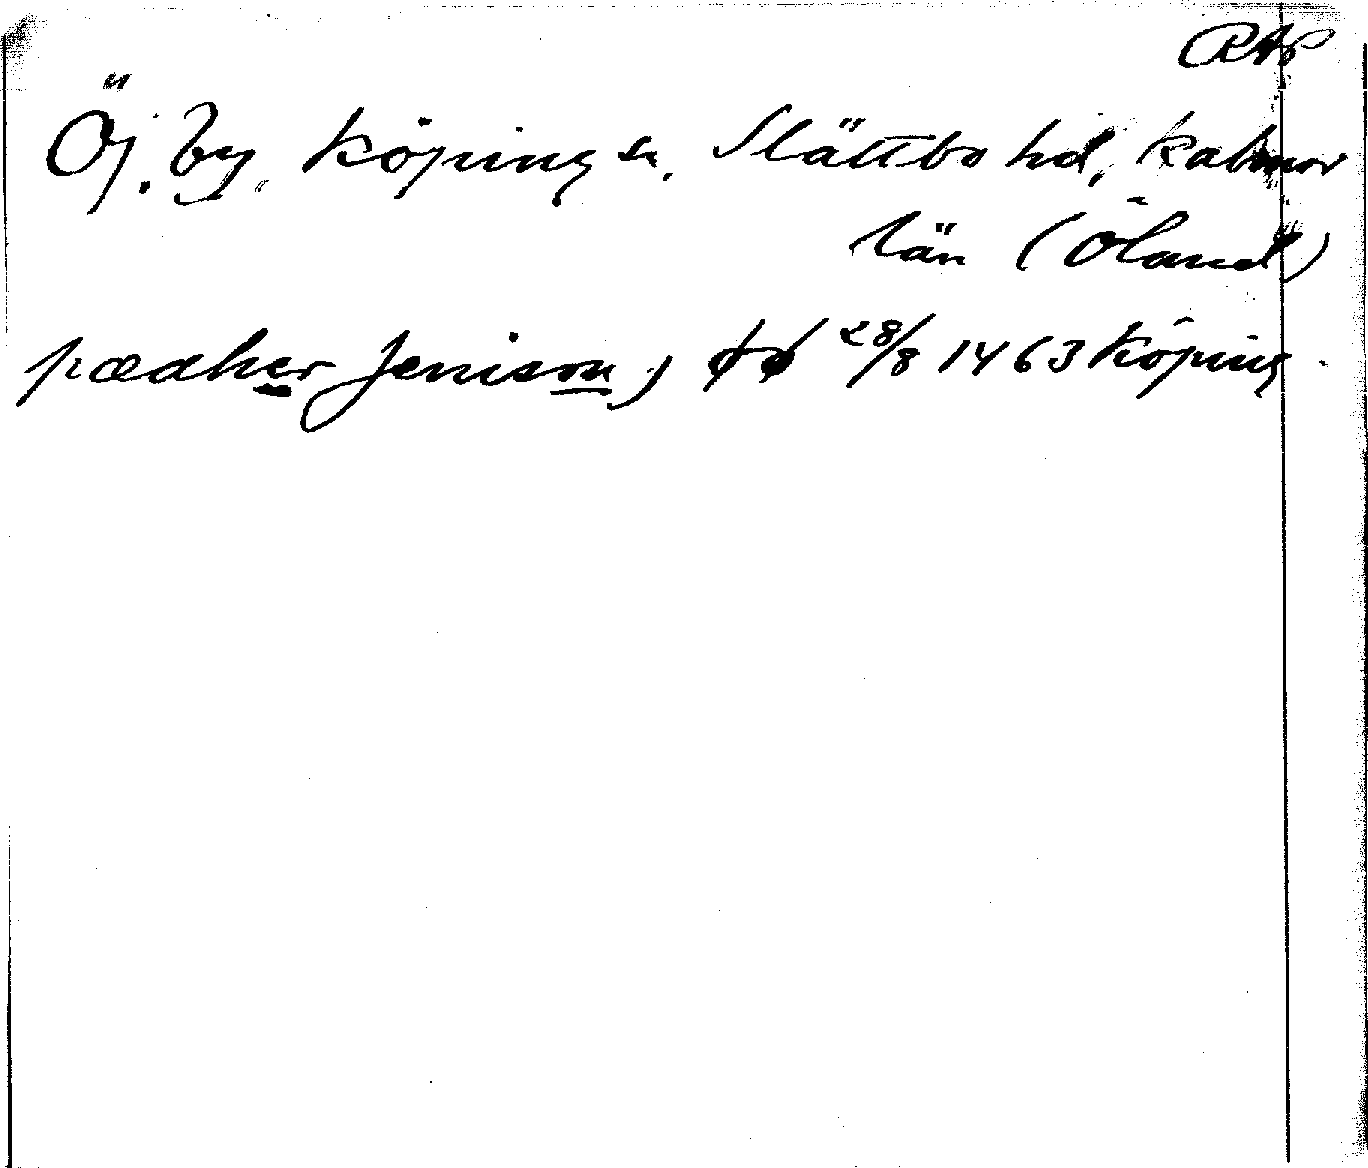 RAp
Öj. by. Köping sn. Slättbo hd, Kalmar
län (Öland)
pædher Jenison, ⌀⌀ 28/8 1463 Köping